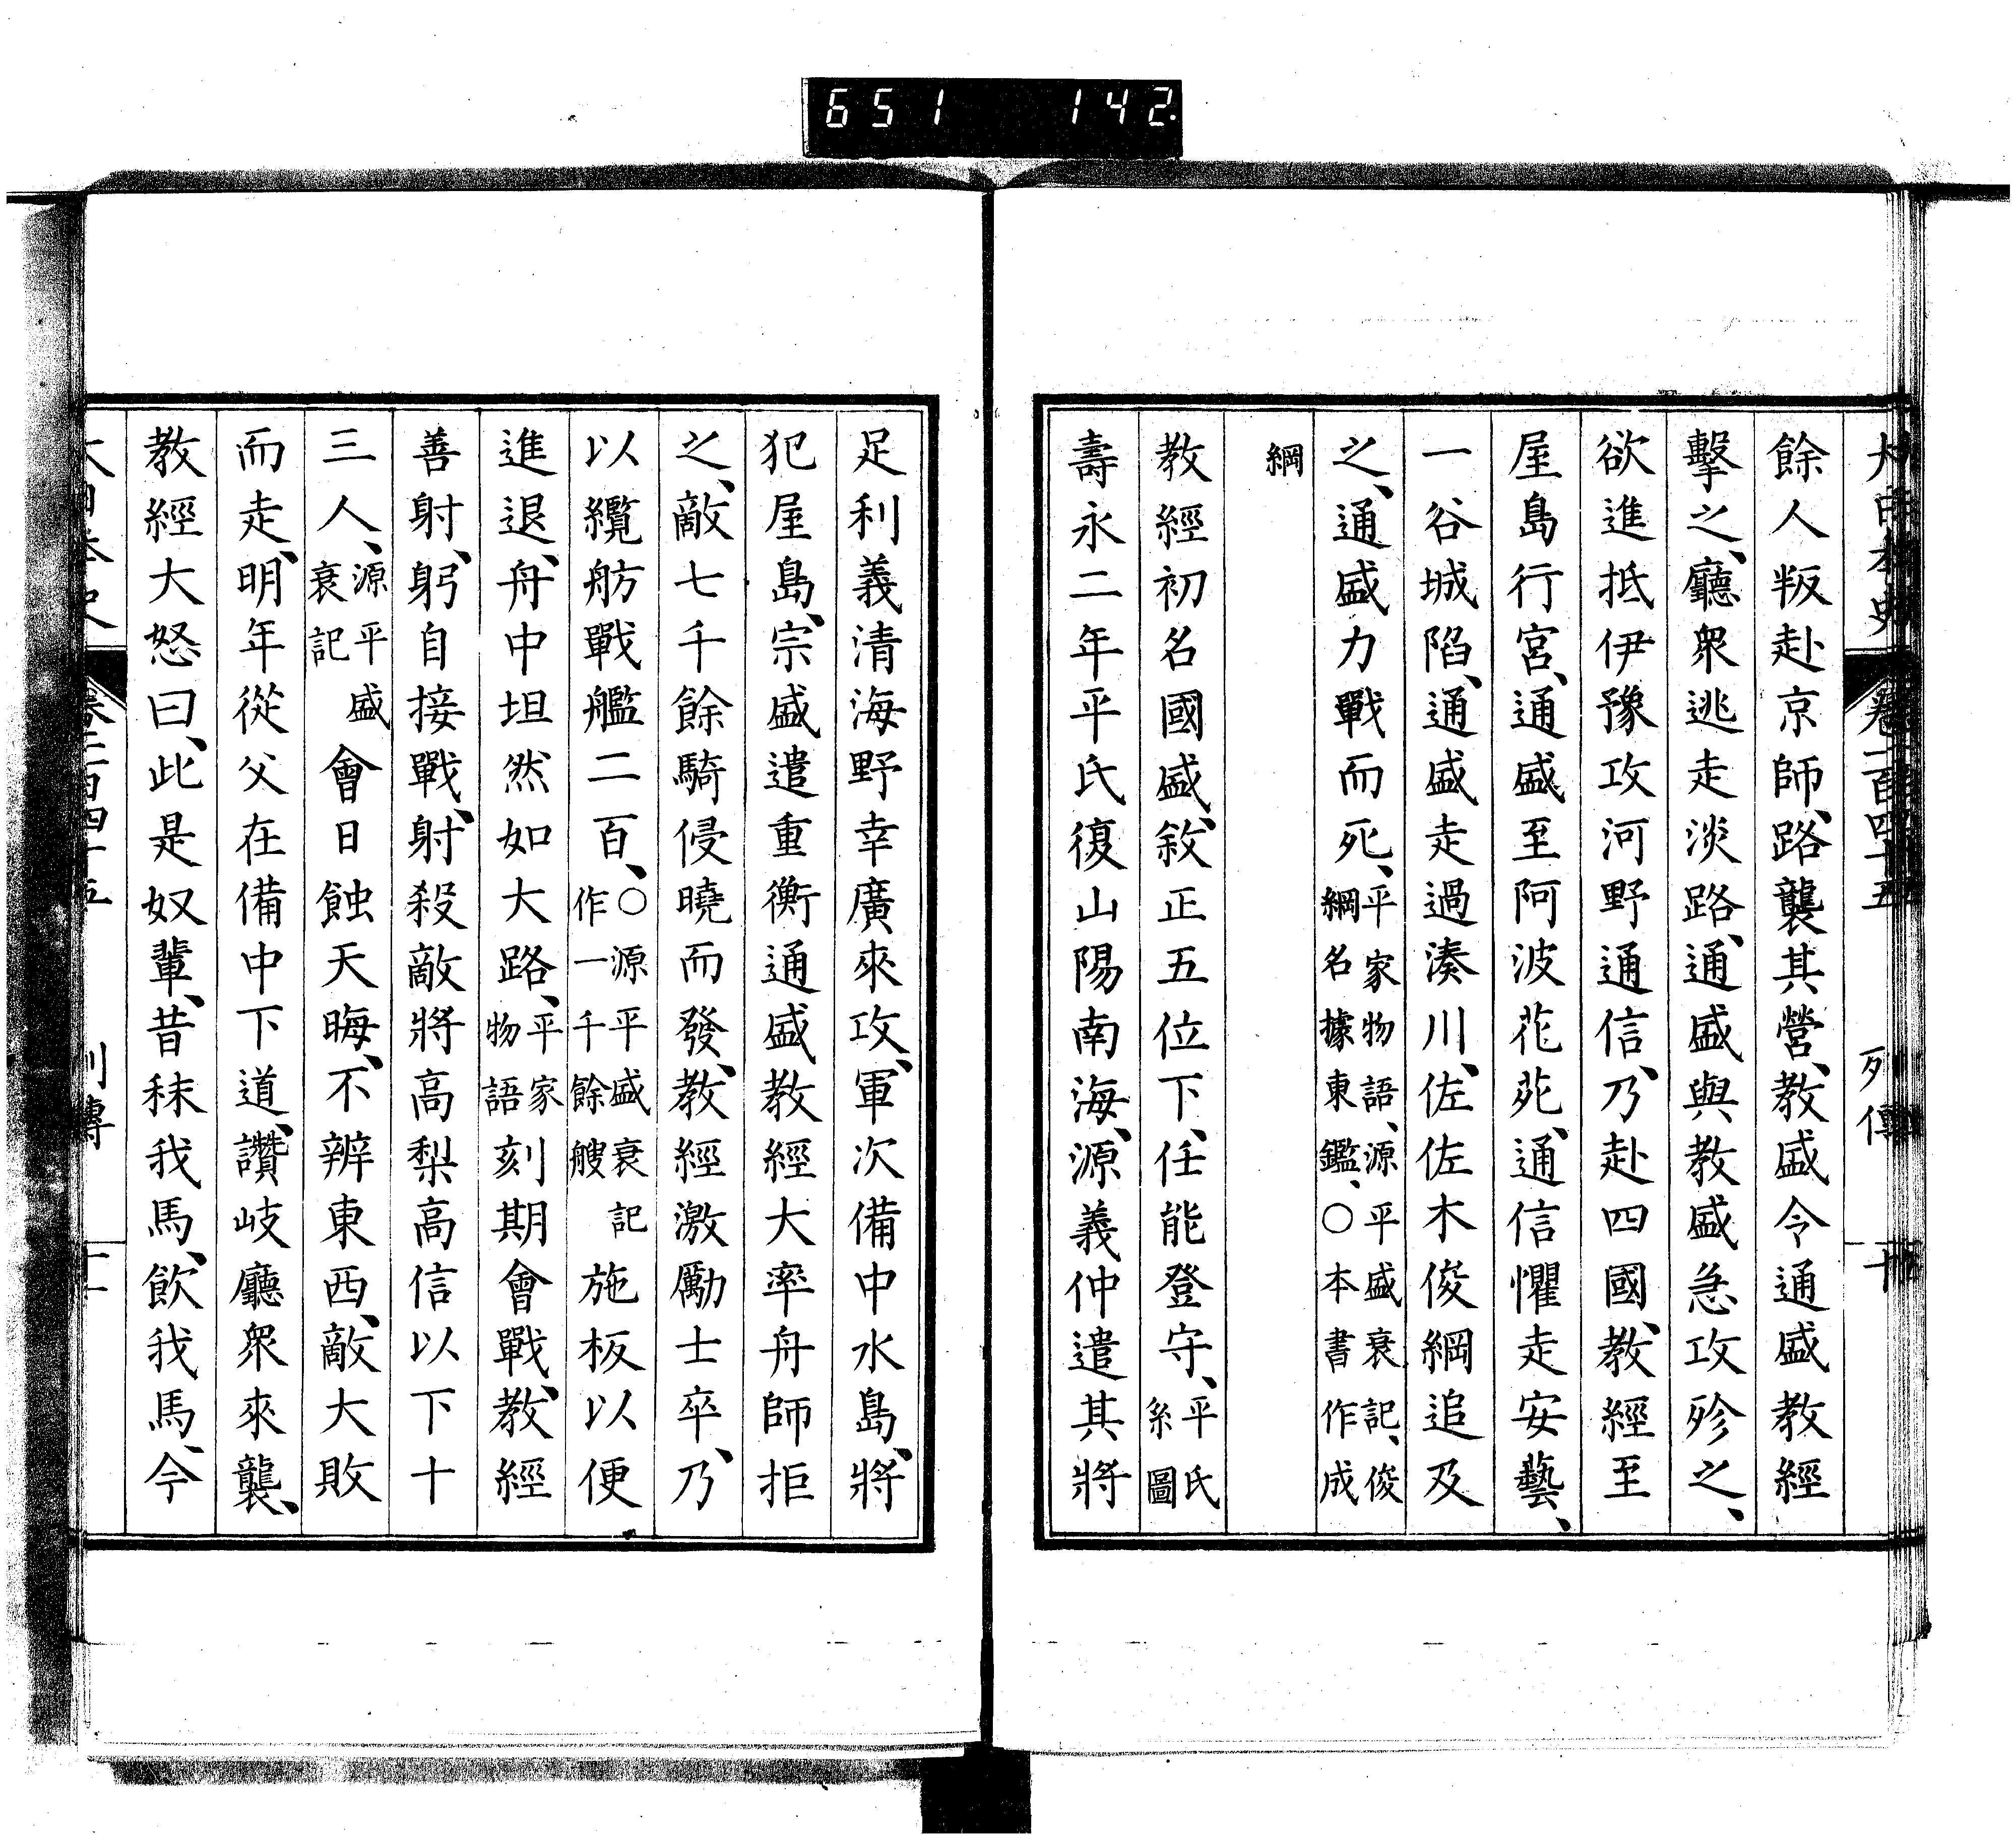 651 142
大日本史 卷一百四十五 列傳 十
餘人叛赴京師、路襲其營、教盛令通盛教經
擊之、廳衆逃走淡路、通盛與教盛急攻殄之、
欲進抵伊豫攻河野通信、乃赴四國、教經至
屋島行宮、通盛至阿波花苑、通信懼走安藝、
一谷城陷、通盛走過湊川、佐佐木俊綱追及
之、通盛力戰而死、平家物語、源平盛衰記、俊綱名據東鑑、○本書作成
綱
教經初名國盛、敘正五位下、任能登守、平氏系圖
壽永二年平氏復山陽南海、源義仲遣其將
足利義清海野幸廣來攻、軍次備中水島、將
犯屋島、宗盛遣重衡通盛教經大率舟師拒
之、敵七千餘騎侵曉而發、教經激勵士卒、乃
以纜舫戰艦二百、○源平盛衰記作一千餘艘施板以便
進退、舟中坦然如大路、平家物語刻期會戰、教經
善射、躬自接戰、射殺敵將高梨高信以下十
三人、源平盛衰記會日蝕天晦、不辨東西、敵大敗
而走、明年從父在備中下道、讚岐廳衆來襲、
教經大怒曰、此是奴輩、昔秣我馬、飲我馬、今
大日本史 卷一百四十五 列傳